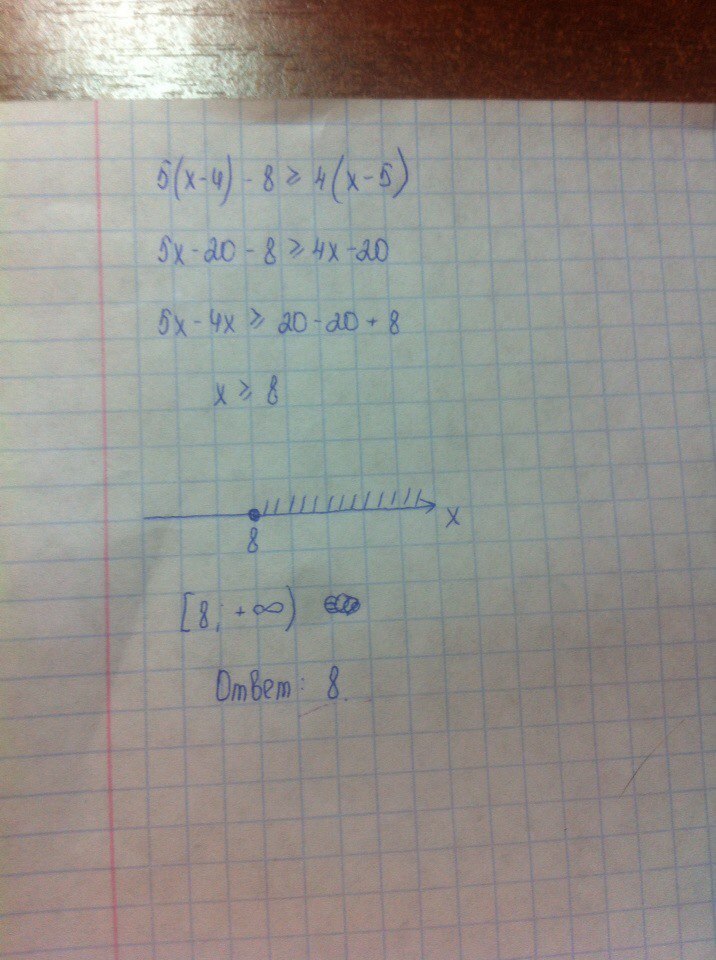 5(x-4) - 8 ⩾ 4(x-5)
5x-20 - 8 ⩾ 4x-20
5x-4x ⩾ 20-20+8
x ⩾ 8
x
8
[8; +∞)
Ответ: 8.